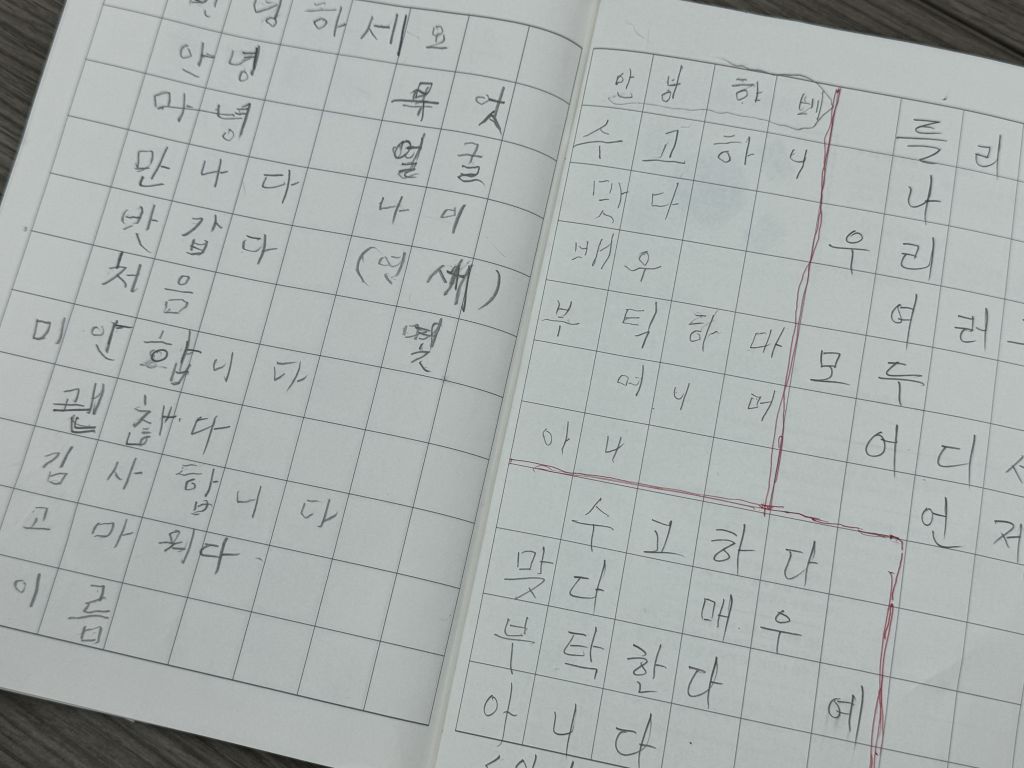 안녕하세요
안녕
마녕
만나다
반갑다
처음
미안합니다
괜찮다
김사합니다
고마워다
이름
목엇
얼굴
나이
(연세)
몇
수고하니
맞다
배우
부틱하다
머니머
아니
수고하다
맞다 매우
부탁한다
예
아니다
들리
나
우리
여러
모두
어디
언제